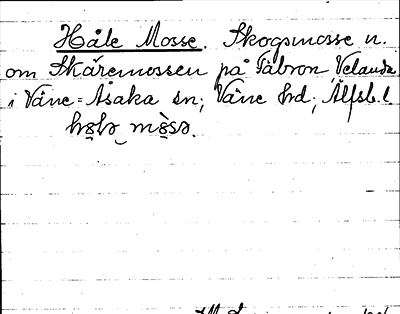 Håle Mosse. Skogsmosse n.
om Skäremossen på Täbron, Velanda
i Väne-Åsaka sn; Väne hd; Älfsb. l.